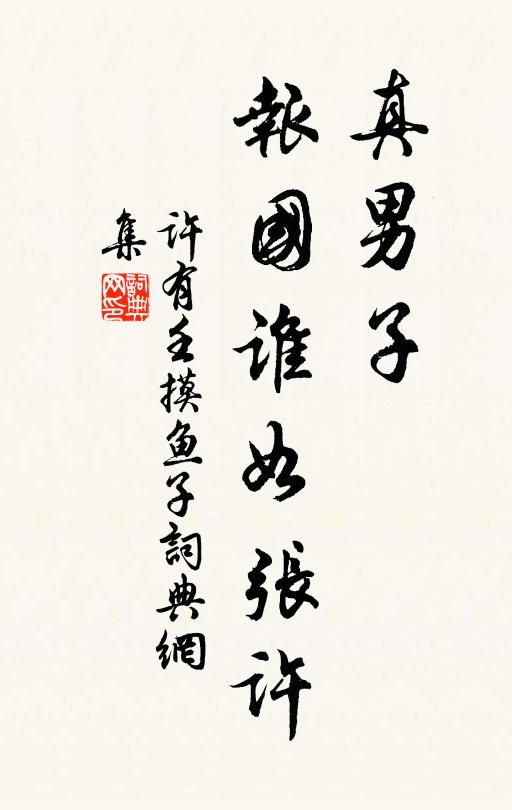 真男子
報國誰如張許
許有壬摸魚子詞典網
集
詞典
网印